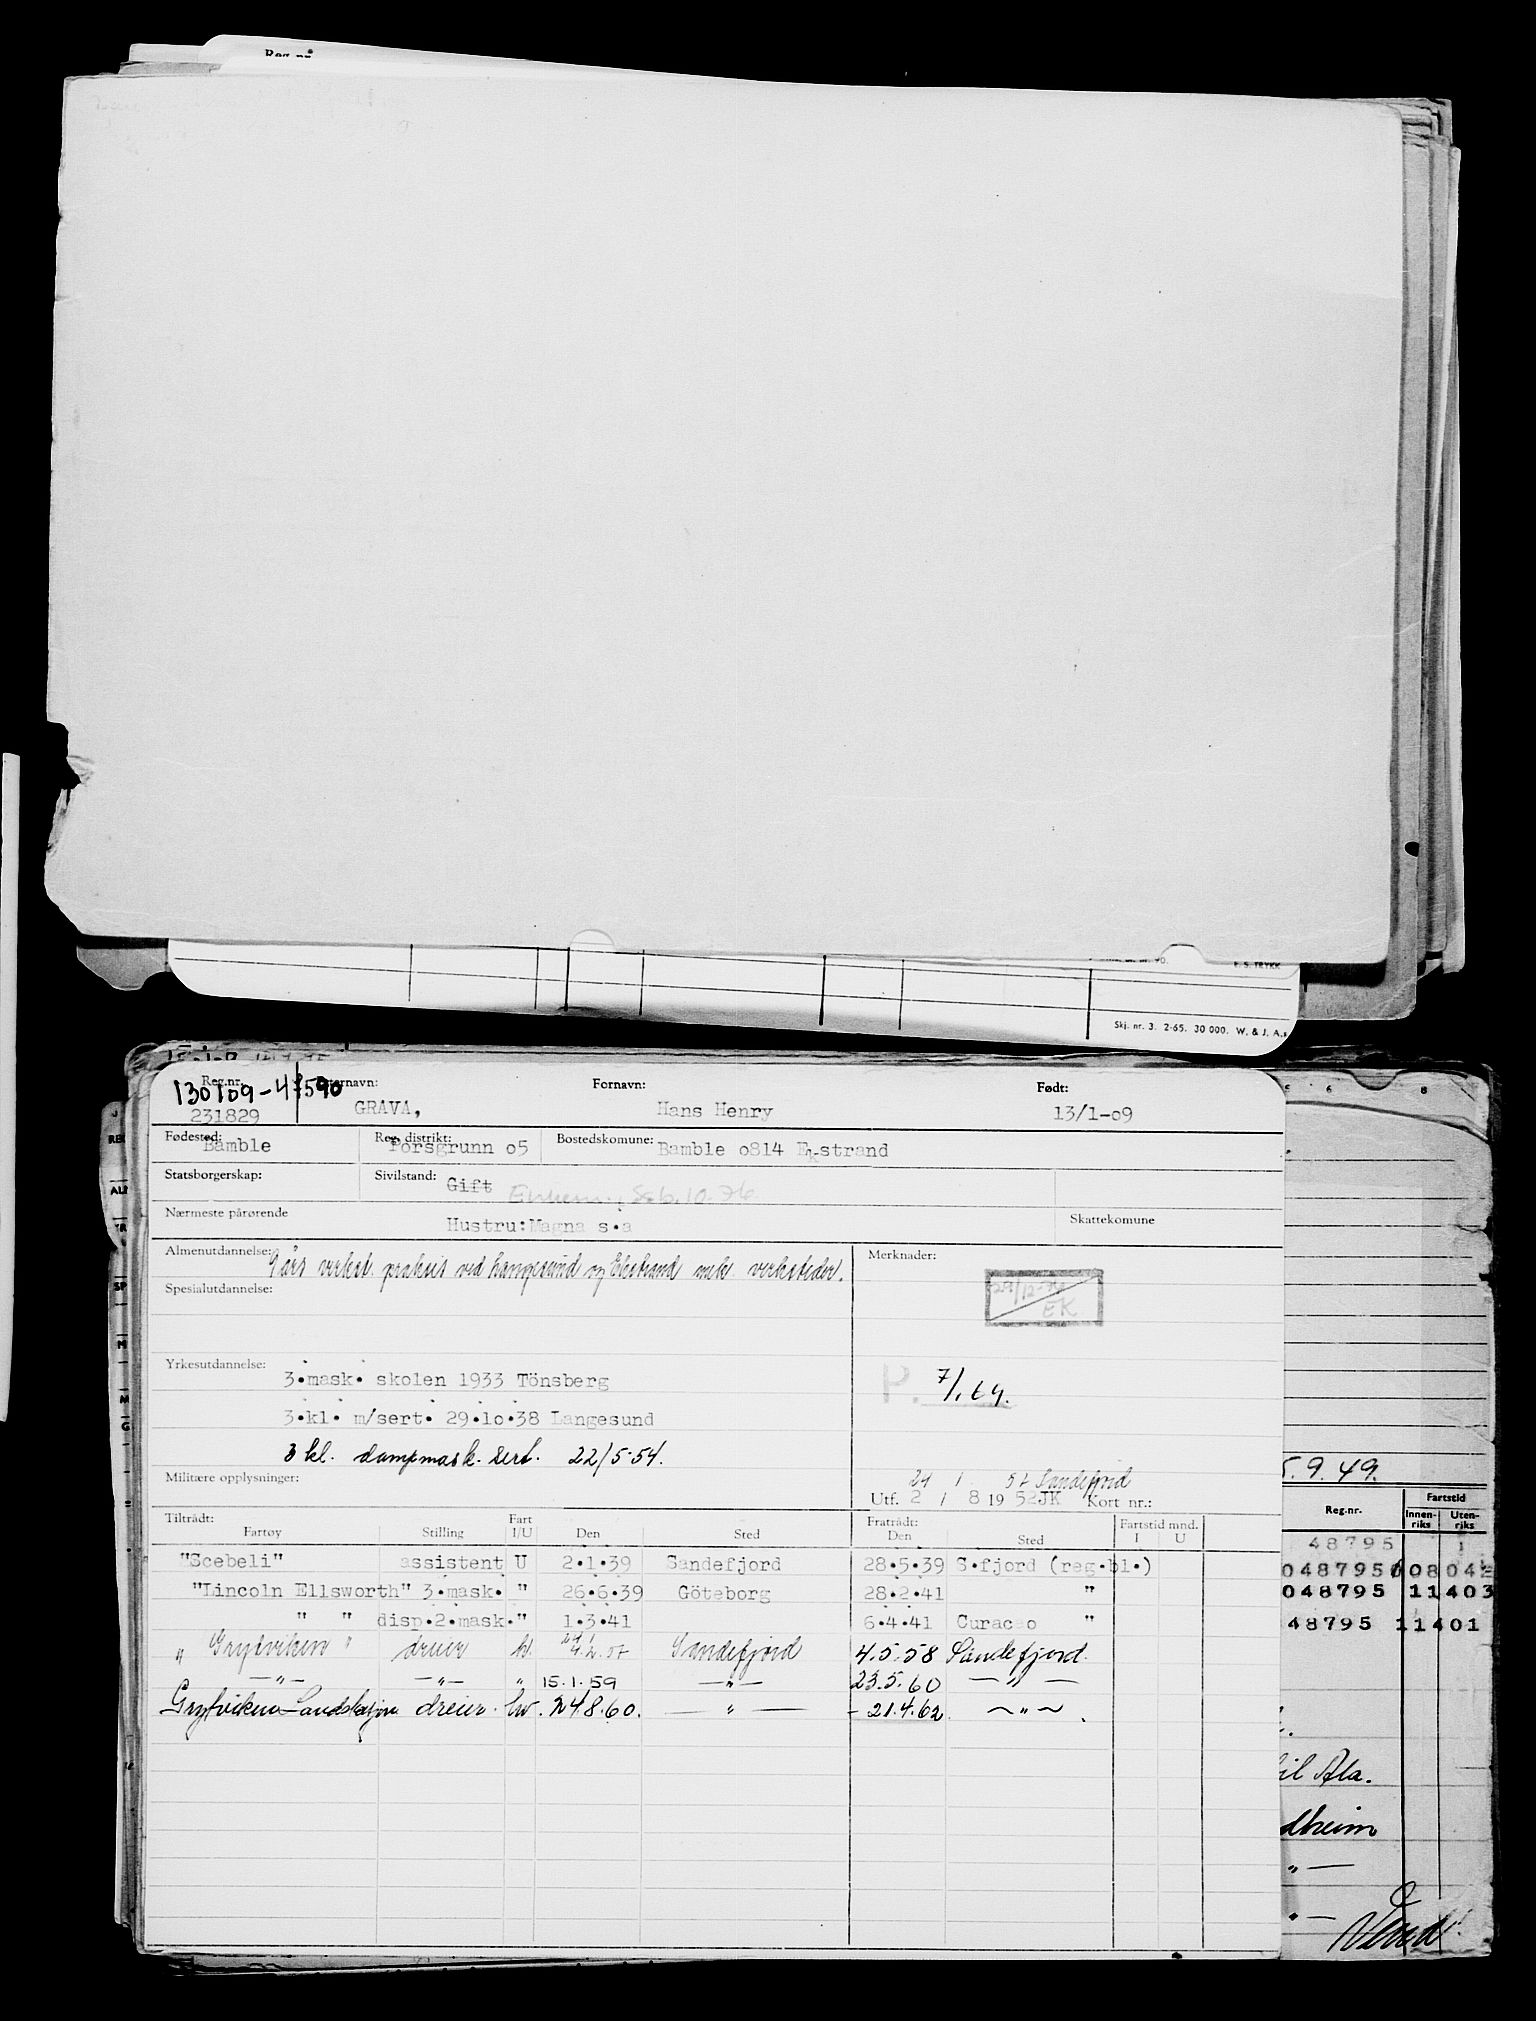 Reg.nr.
E. S. TRYKK
Skj. nr. 3. 2-65. 30 000. W. & J. A.s
Reg.nr. Etternavn: Fornavn: Født:
130109-47590
231829 GRAVA, Hans Henry 13/1-o9
Fødested: Reg. distrikt: Bostedskomune:
Bamble Porsgrunn o5 Bamble o814 Ekstrand
Statsborgerskap: Sivilstand: Gift
Nærmeste pårørende Hustru:Magna s.a Skattekomune
Almenutdannelse: års verkst. praksis ved Langesund og Ekstrand mek. verksteder. Merknader:
Spesialutdannelse:
29/12-76
EK
Yrkesutdannelse:
3.mask. skolen 1933 Tönsberg P. 7/.69.
3.kl. m/sert. 29.1o.38 Langesund
3 kl. dampmask. sert. 22/5-54.
Militære opplysninger:
29 / 1 57 Sandefjord
Utf. 2 / 8 19 52JK Kort nr.:
Tiltrådt: Fratrådt: Fartstid mnd.
Fartøy Stilling Fart I/U Den Sted Den Sted I U
"Scebeli" assistent U 2.1.39 Sandefjord 28.5.39 S.fjord (reg.bl.)
"Lincoln Ellsworth" 3.mask. " 26.6.39 Göteborg 28.2.41 "
" " disp.2.mask." 1.3.41 6.4.41 Curacao "
" Grytviken " dreier Sandefjord 4.5.58 Sandefjord.
—"— —"— " 15.1.59 —"— 23.5.60 —"—
Grytviken Landstasjon dreier. hv. 24.8.60. —"— 21.4.62. —"—.
5.9.49.
Reg.nr. Fartstid
Innen-riks Uten-riks
48795 1
048795
048795 11403
48795 11401
Ala.
dheim
"—
"—